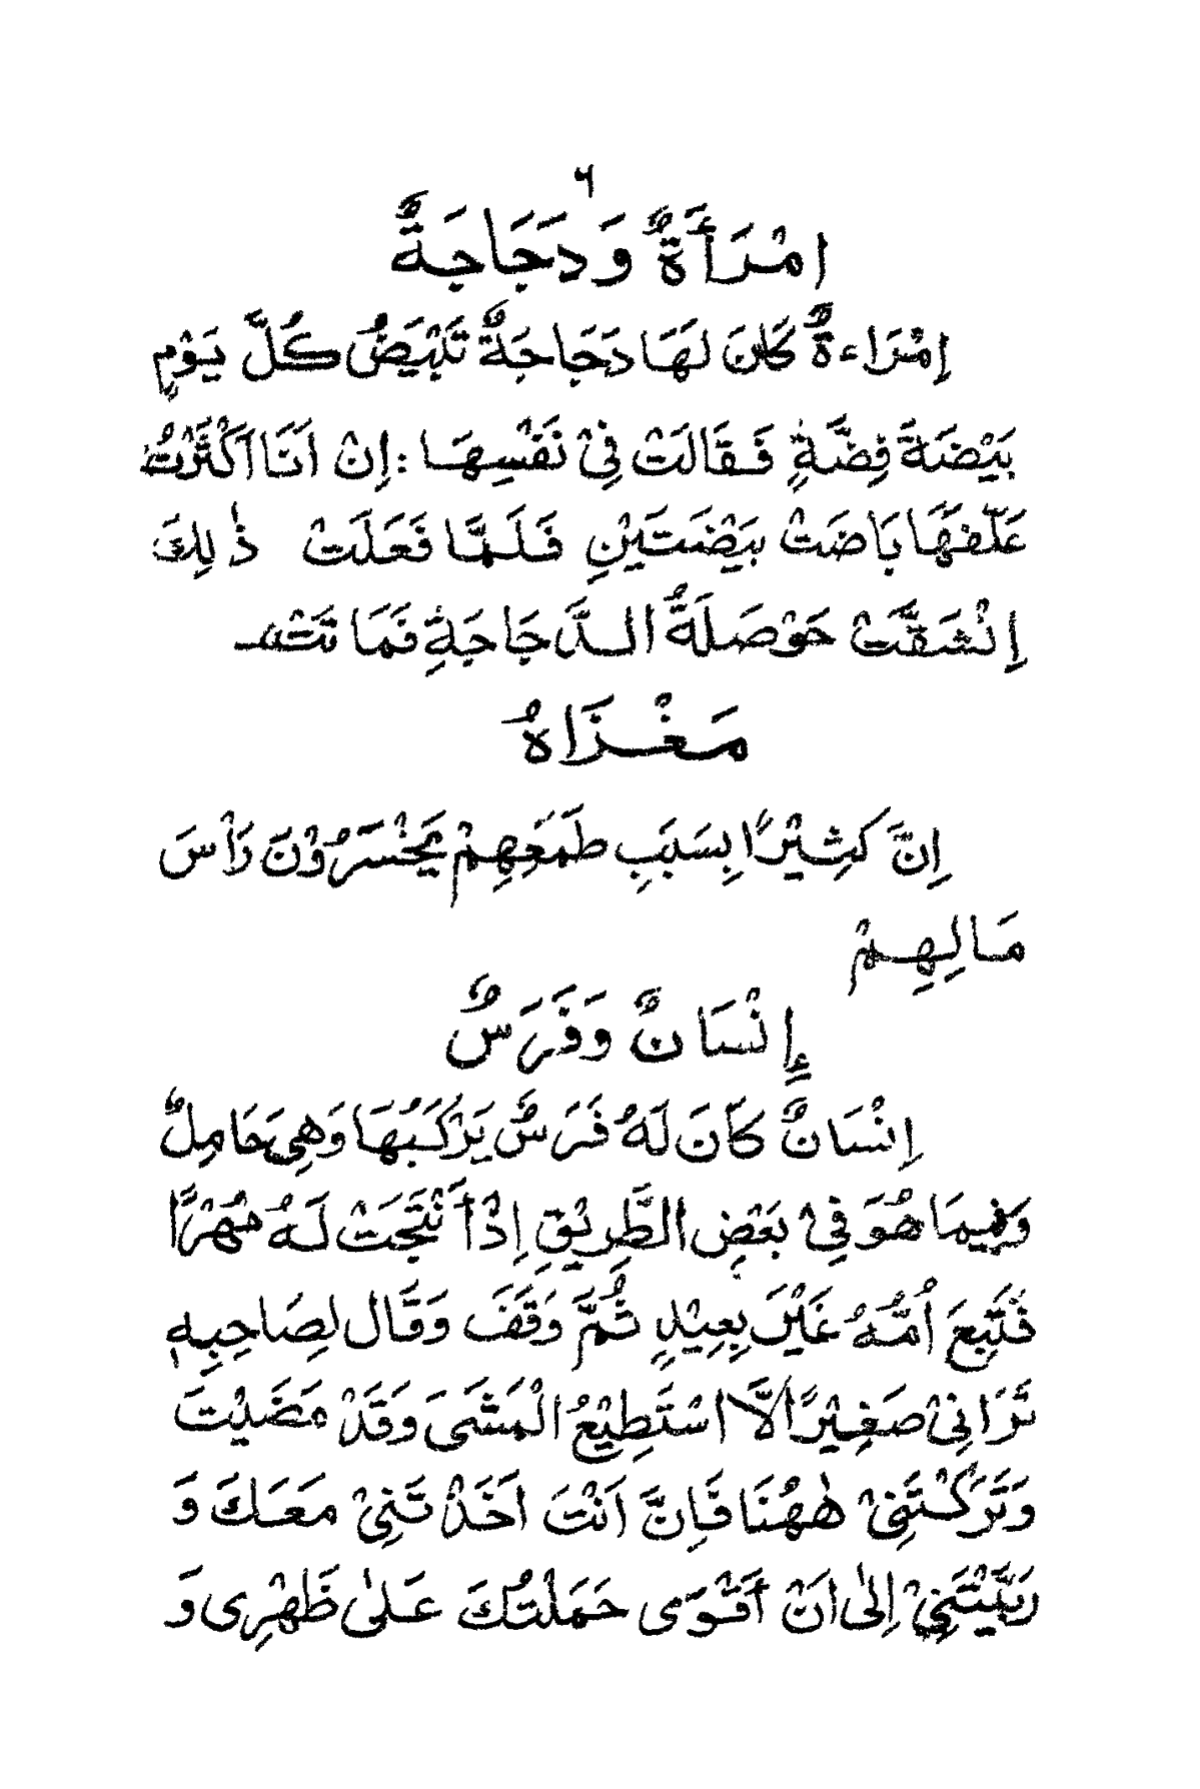 ٦
اِمْرَأَةٌ وَدَجَاجَةٌ
اِمْرَاءةٌ كَانَ لَهَا دَجَاجَةٌ تَبْيَضُ كُلَّ يَوْمٍ
بَيْضَةَ فِضَّةٍ فَقَالَتْ فِىْ نَفْسِهَا : اِنْ اَنَا اَكْثَرْتُ
عَلْفَهَا بَاضَتْ بَيْضَتَيْنِ فَلَمَّا فَعَلَتْ ذٰلِكَ
اِنْشَقَّتْ حَوْصَلَةُ الدَّجَاجَةِ فَمَا تَتْ
مَغْزَاهُ
اِنَّ كَثِيْرًا بِسَبَبِ طَمَعِهِمْ يَخْسَرُوْنَ رَاْسَ
مَالِهِمْ
إِنْسَانٌ وَفَرَسٌ
اِنْسَانٌ كَانَ لَهُ فَرَسٌ يَرْكَبُهَا وَهِىَ حَامِلٌ
وَفِيمَا هُوَ فِىْ بَعْضِ الطَّرِيْقِ اِذْ أَنْتَجَتْ لَهُ مُهْرًا
فَتَبِعَ اُمَّهُ غَيْرَ بِعِيْدٍ ثُمَّ وَقَفَ وَقَال لِصَاحِبِهٖ
تَرَانِىْ صَغِيْرًا لَّا اسْتَطِيْعُ الْمَشَىَ وَقَدْ مَضَيْتَ
وَتَرَكْتَنِىْ هٰهُنَا فَاِنَّ اَنْتَ اَخَذْ تَنِىْ مَعَكَ وَ
رَبَّيْتَنِىْ اِلٰى اَنْ أَقْوَى حَمَلْتُكَ عَلٰى ظَهْرِى وَ